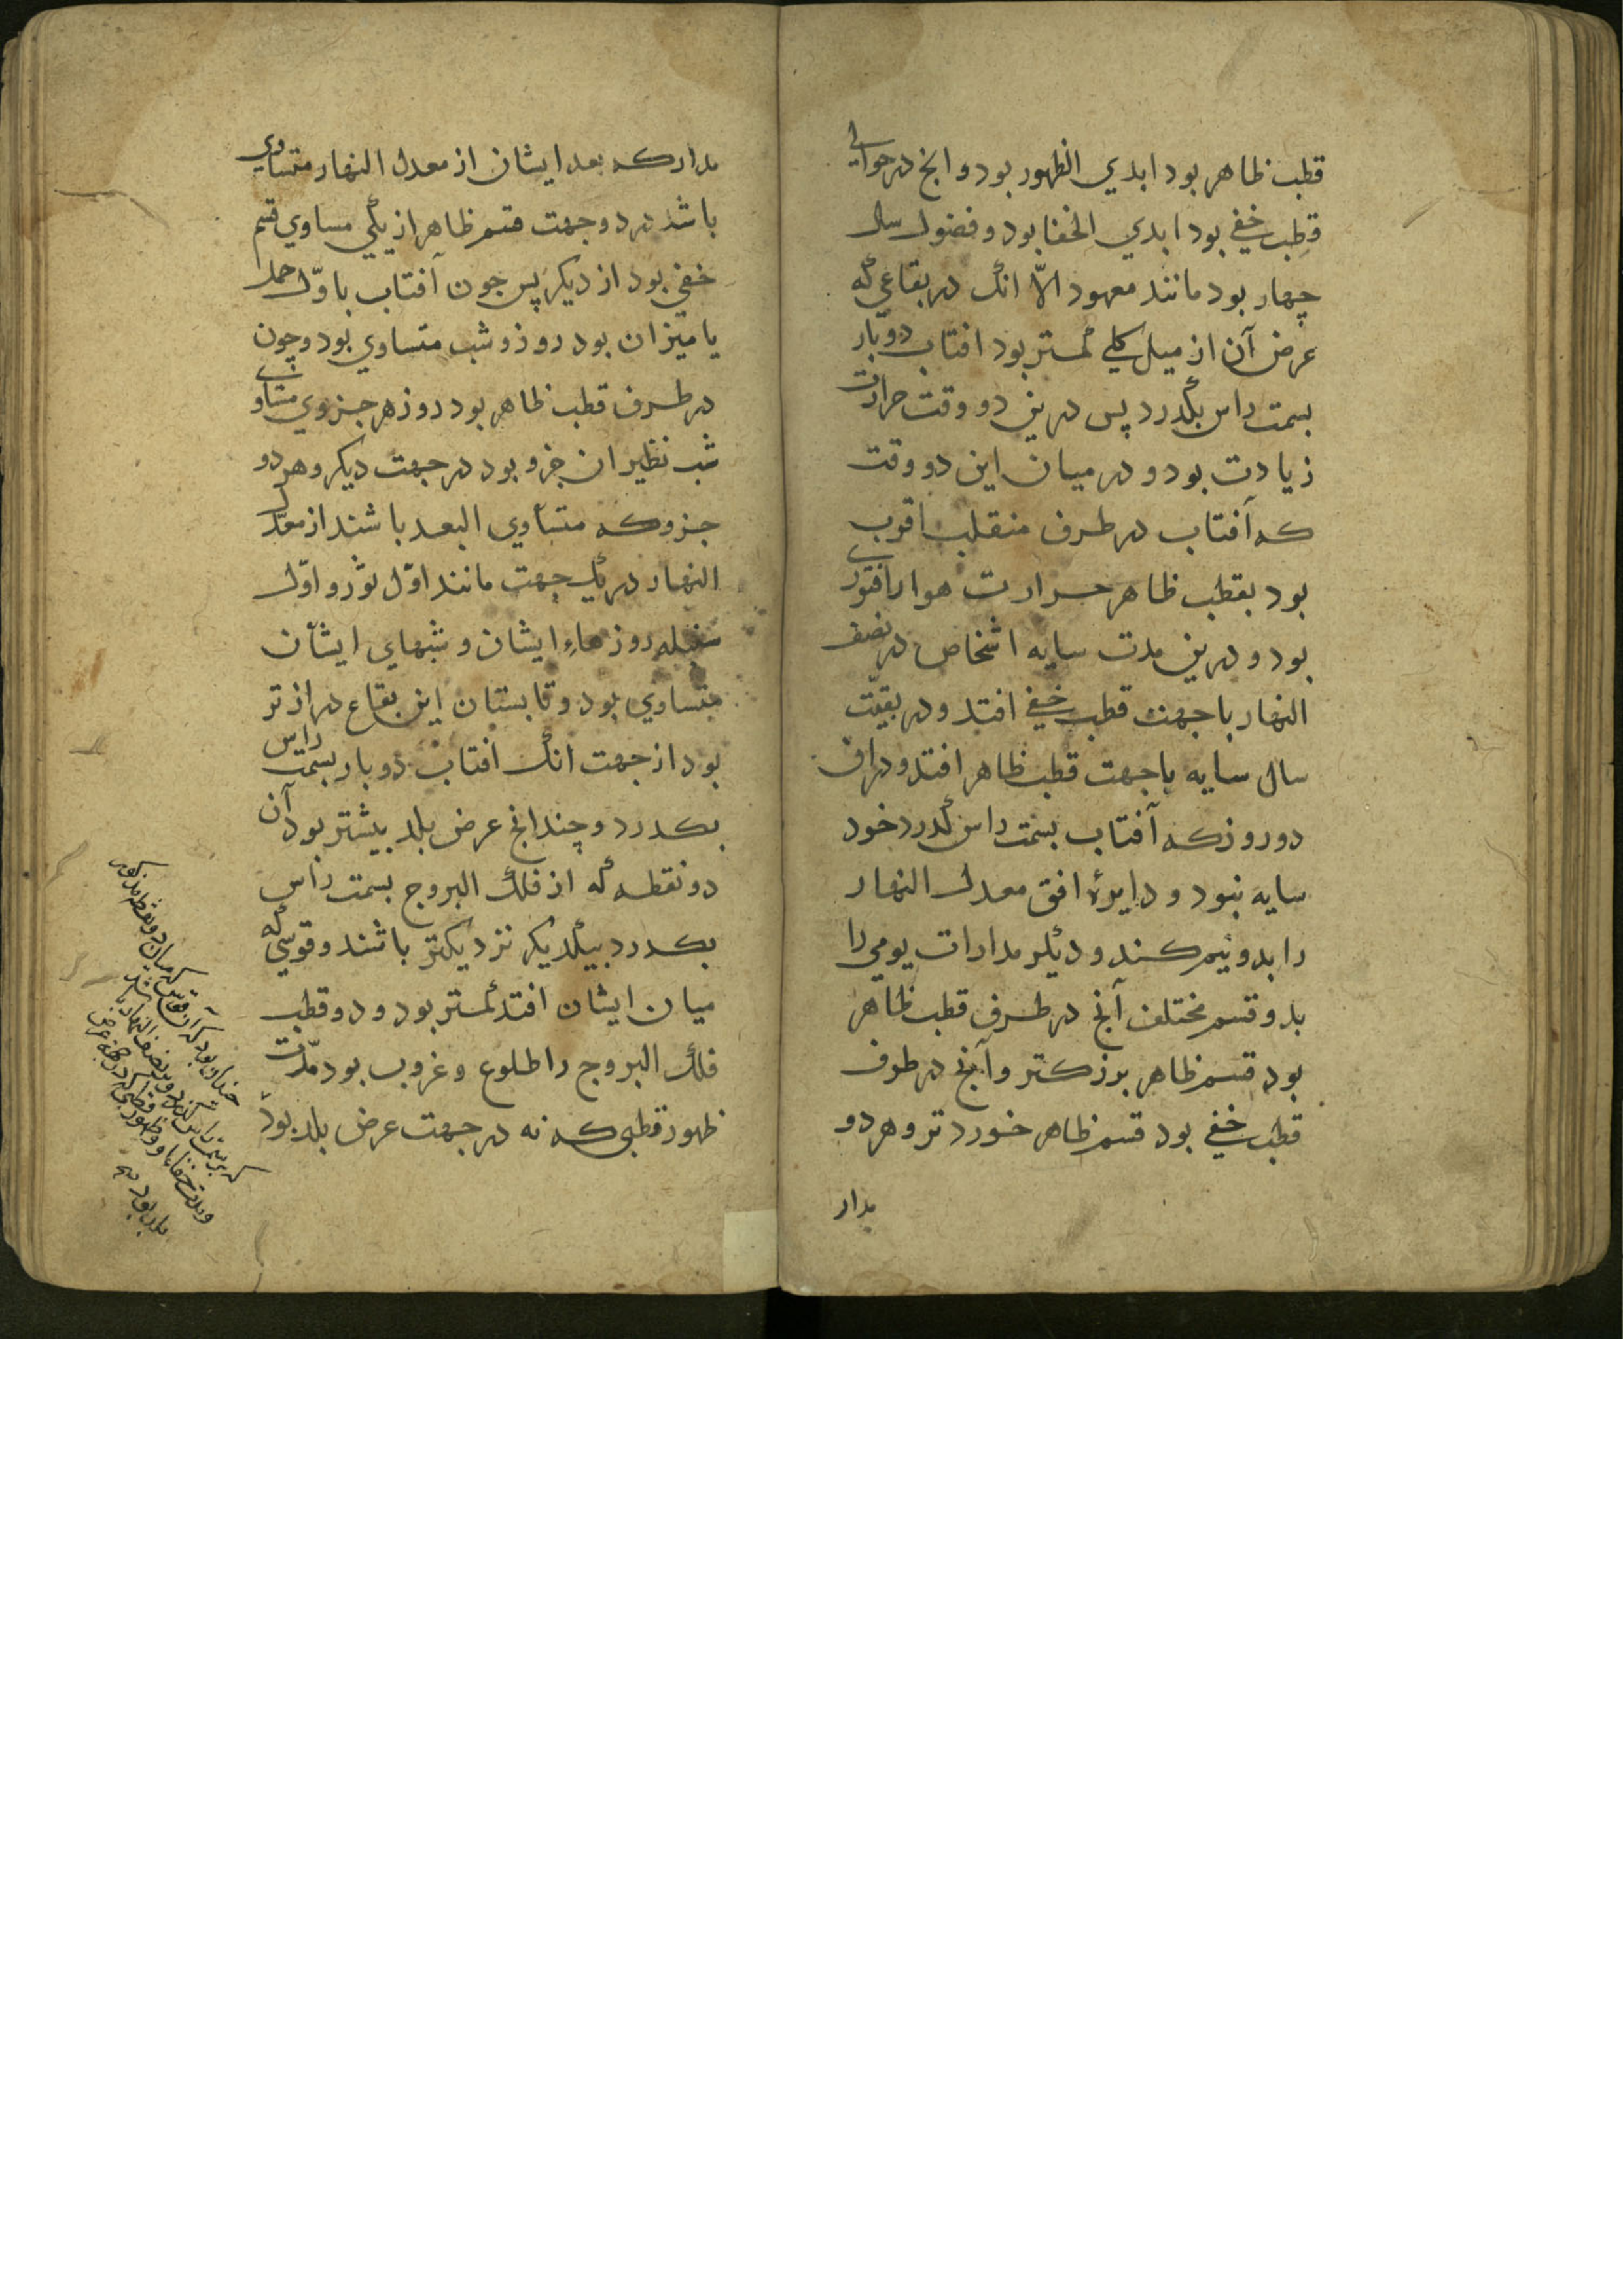 قطب ظاهر بود ابدي الظهور بود و انچ در حوالی
قطب خفي بود ابدي الخفا بود و فصول سال
چهار بود مانند معهود الّا انک در بقاعي که
عرض آن از ميل کلي کمتر بود افتاب دو بار
بسمت راس بگذرد پس درين دو وقت حرارت
زيادت بود و در ميان اين دو وقت
که آفتاب در طرف منقلب اقرب
بود بقطب ظاهر حرارت هوا را فتوري
بود و درين مدت سايه اشخاص در نصف
النهار با جهت قطب خفي افتد و در بقيّت
سال سايه با جهت قطب ظاهر افتد و در ان
دو روز که آفتاب بسمت راس گذرد خود
سايه نبود و دايرۀ افق معدل النهار
را بدو نيم کند و ديگر مدارات يومي را
بدو قسم مختلف آنچ در طرف قطب ظاهر
بود قسم ظاهر بزرکتر و آنچ در طرف
قطب خفي بود قسم ظاهر خوردتر و هر دو
مدار
مدار که بعد ايشان از معدل النهار متساوي
باشد در دو جهت قسم ظاهر از يکي مساوي قسم
خفي بود از ديکر پس جون آفتاب باوّل حمل
يا ميزان بود روز و شب متساوي بود و چون
در طرف قطب ظاهر بود روز هر جزوي مساوي
شب نظير ان جزو بود در جهت ديکر و هر دو
جزو که متساوي البعد باشند از معدّل
النهار در يک جهت مانند اوّل ثور و اوّل
سنبله روزهاءِ ايشان و شبهاي ايشان
متساوي بود و تابستان اين بقاع درازتر
بود از جهت انک افتاب دو بار بسمت راس
بکدرد و چندانچ عرض بلد بيشتر بود آن
دو نقطه که از فلک البروج بسمت راس
بکدرد بيکديکر نزديکتر باشند و قوسي که
ميان ايشان افتد کمتر بود و دو قطب
فلک البروج را طلوع و غروب بود مدّت
ظهور قطبي که نه در جهت عرض بلد بود
چندان بود که آن قوس که ميان دو نقطه مذکور
که بر سمت راس گذرد و بر نصف النهار باشد
و مدت خفا با و ظهور قطبي که در جهة عرض
بلد بود